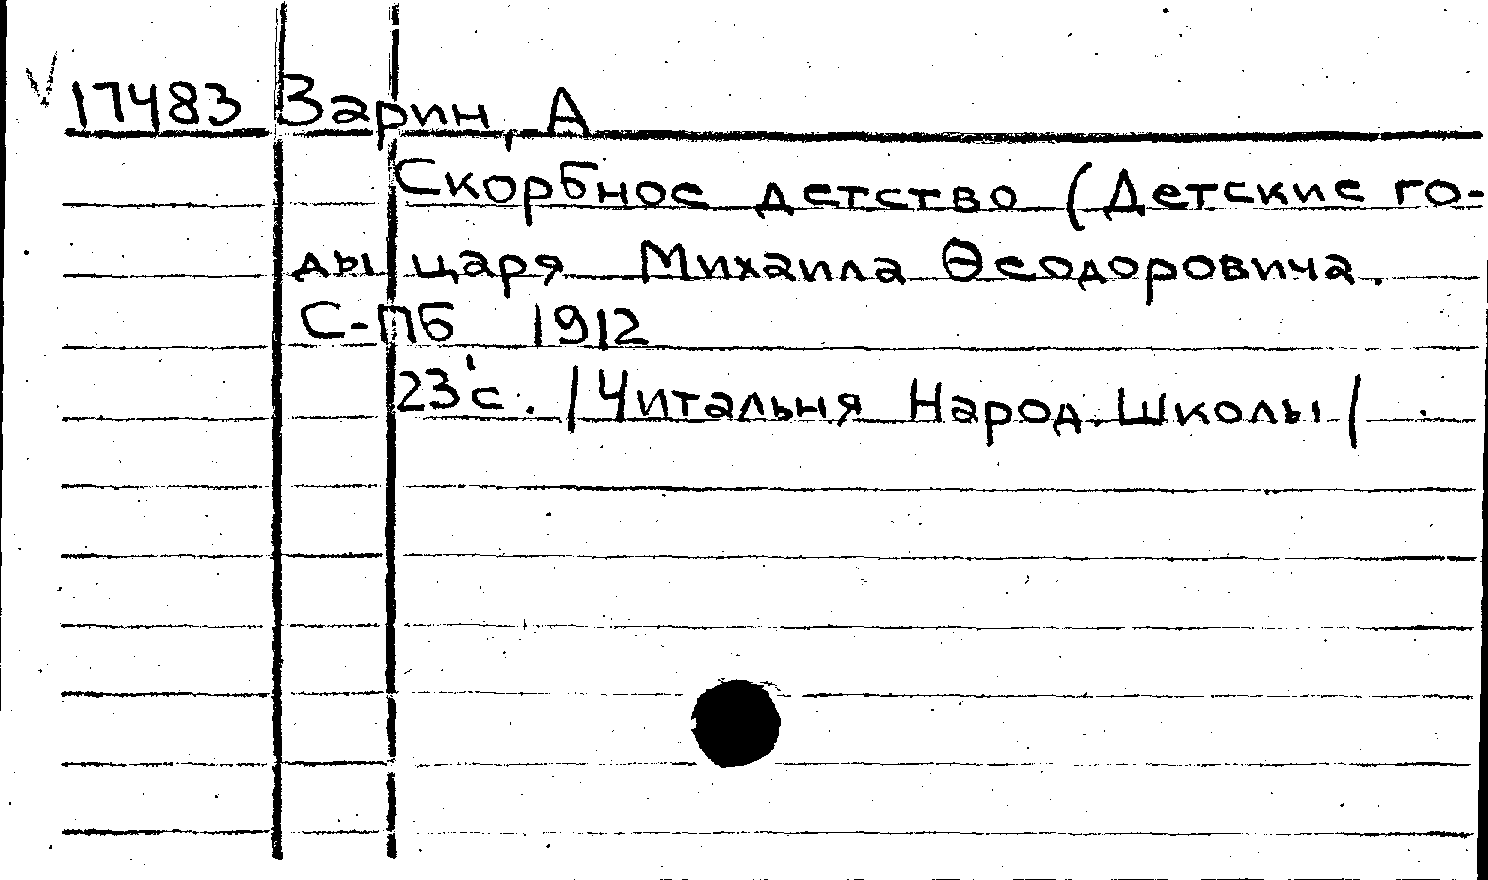 17483 Зарин, А
Скорбное детство (Детские го-
ды царя Михаила Ѳеодоровича.
С-ПБ 1912
23 с. /Читальня Народ. Школы/